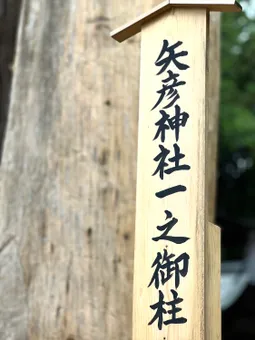 矢彦神社一之御柱